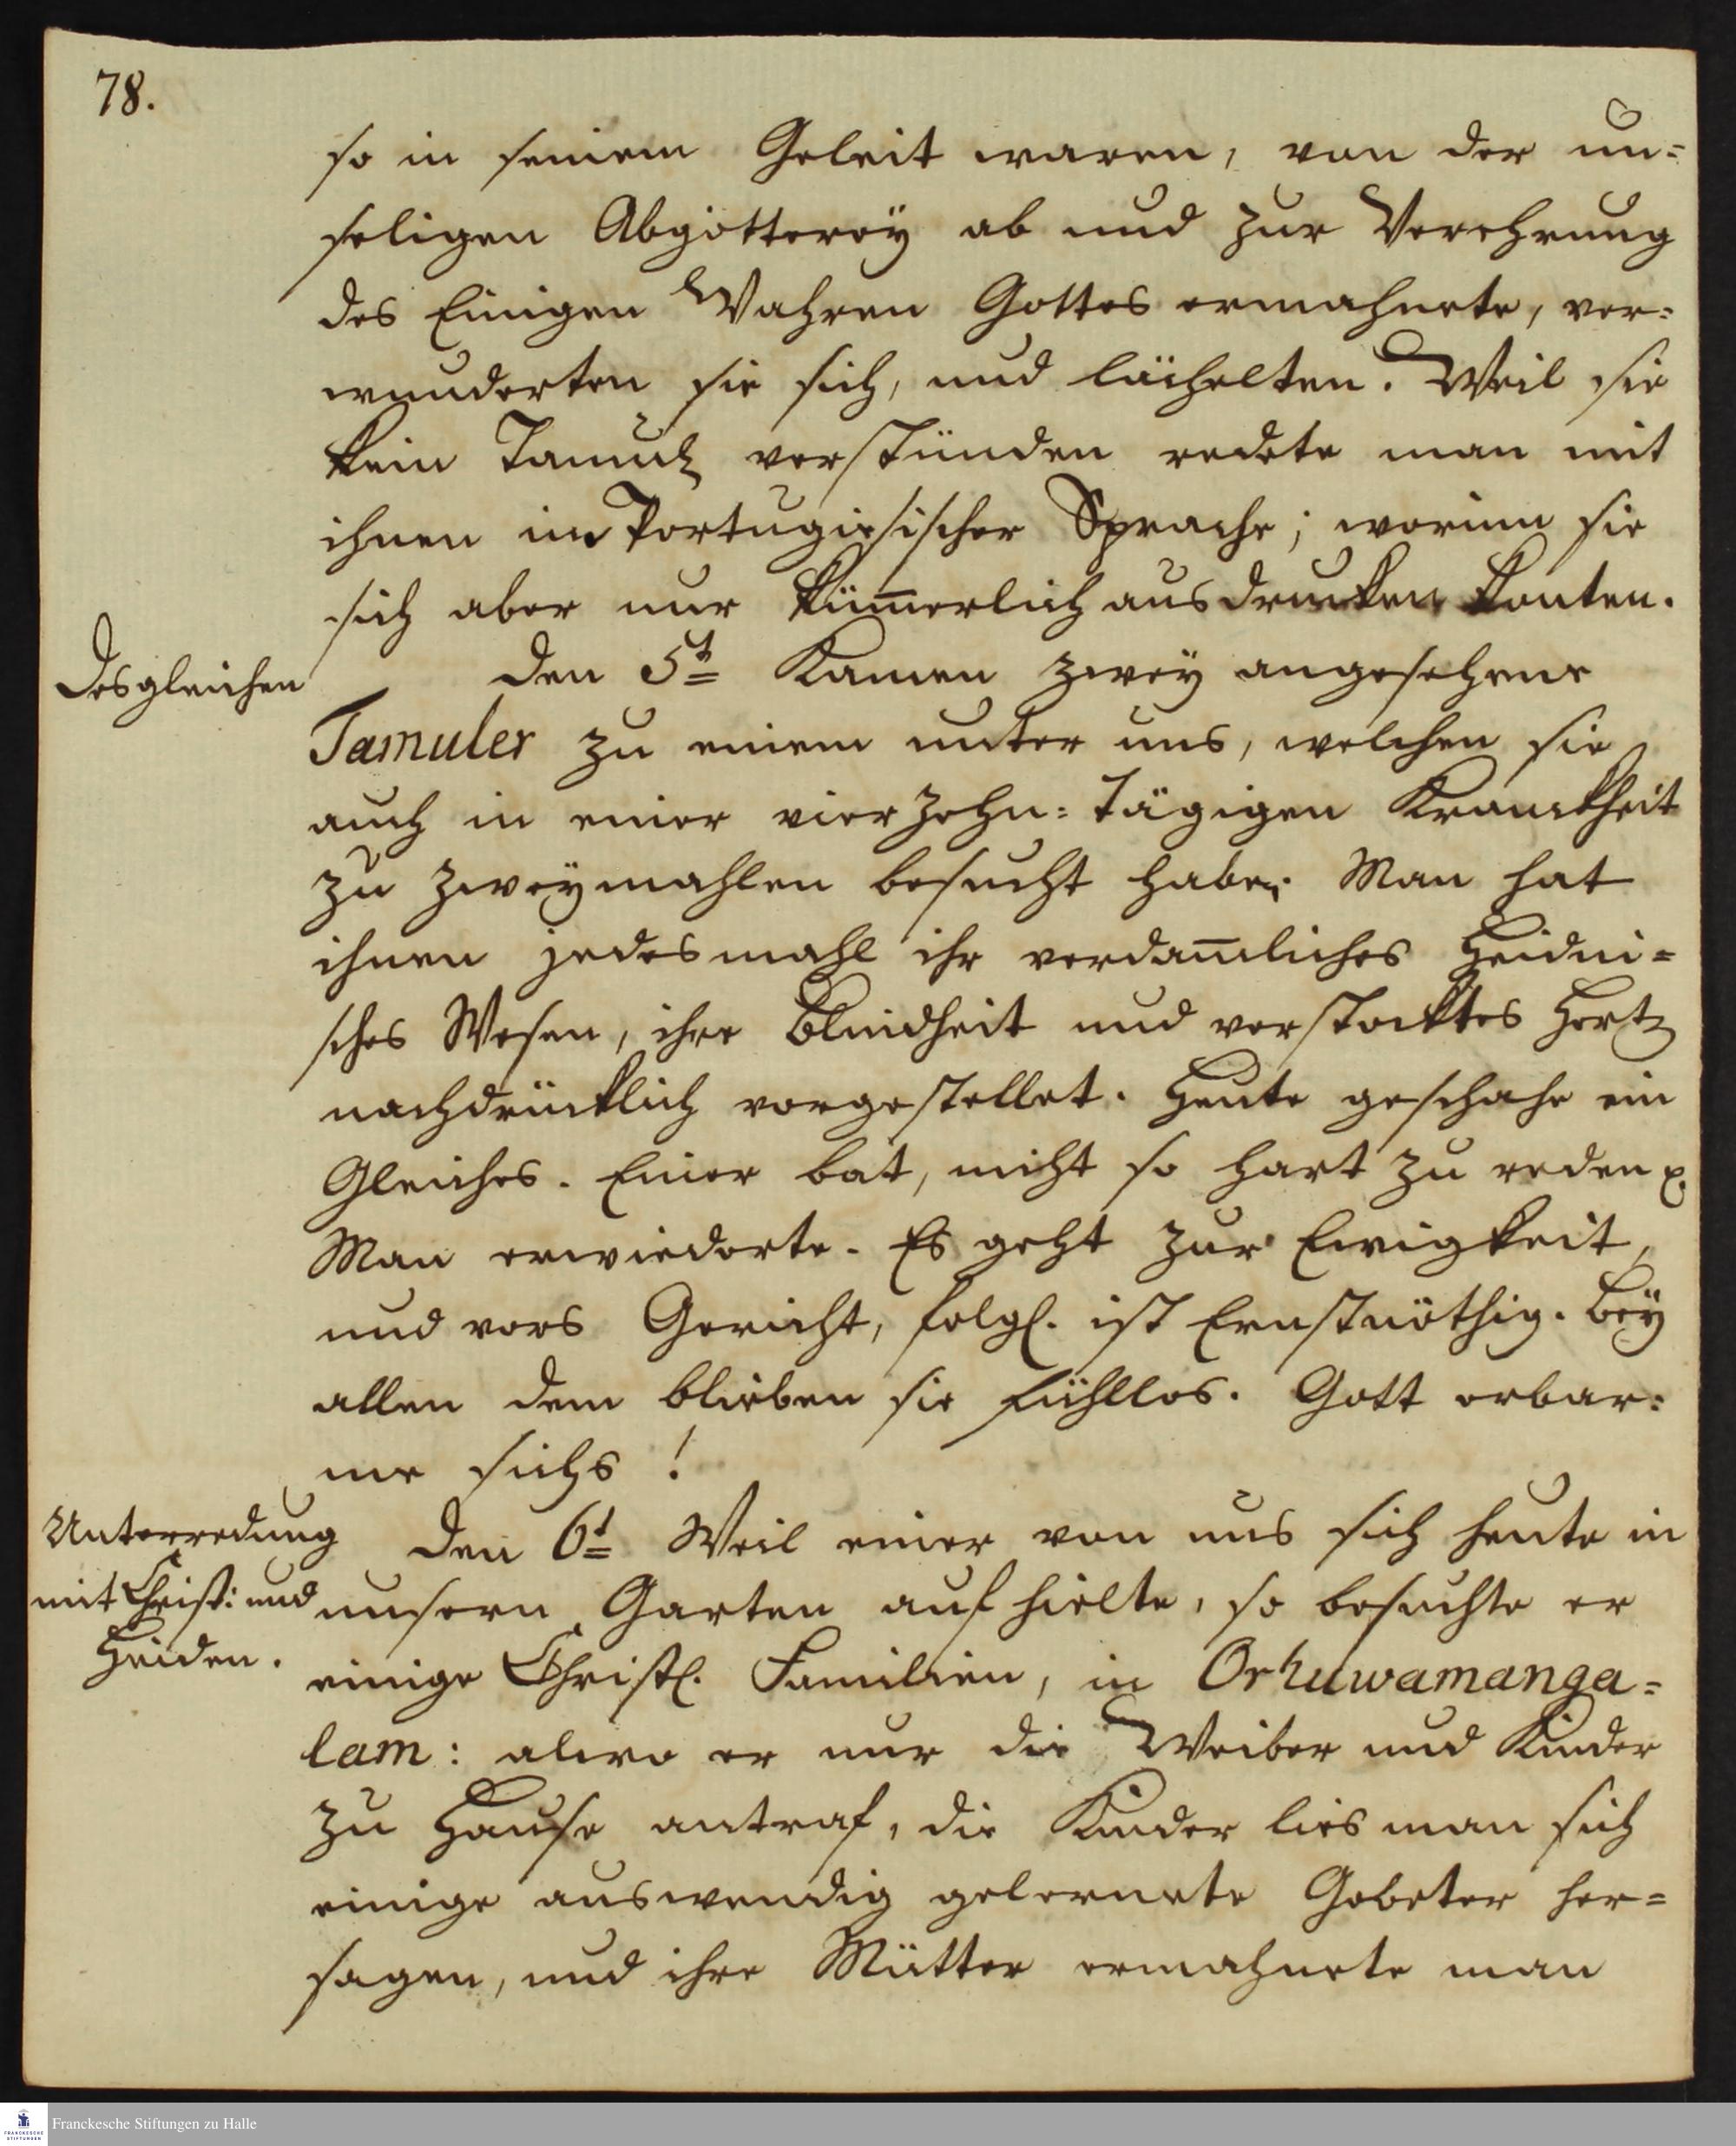 78.
so in seinem Geleit waren, von der un=
seligen Abgötterey ab und zur Verehrung
des Einigen Wahren Gottes ermahnete, ver=
wunderten sie sich, und lächelten. Weil sie
kein Tamul verstünden redete man mit
ihnen in Portugiesischer Sprache; worinn sie
sich aber nur küm̄erlich ausdrucken konten.
Desgleichen
Den 5t Kamen zwey angesehene
Tamuler zu einem unter uns, welchen sie
auch in einer vierzehn=tägigen Kranckheit
zu zweymahlen besucht haben. Man hat
ihnen jedesmahl ihr verdam̄liches Heidni=
sches Wesen, ihre Blindheit und verstocktes Hertz
nachdrücklich vorgestellet. Heute geschahe ein
Gleiches. Einer bat, nicht so hart zu reden p.
Man erwiederte. Es geht zur Ewigkeit,
und vors Gericht, folgl. ist Ernst nöthig. Bey
allen dem blieben sie fühllos. Gott erbar=
me sichs!
Unterredung
mit Christ: und
Heiden.
Den 6t Weil einer von uns sich heute in
unsern Garten aufhielte, so besuchte er
einige Christl. Familien, in Orhuwamanga=
lam: alwo er nur die Weiber und Kinder
zu Hause antraf, die Kinder lies man sich
einige auswendig gelernete Gebeter her=
sagen, und ihre Mütter ermahnete man
Franckesche Stiftungen zu Halle
FRANCKESCHE
STIFTUNGEN